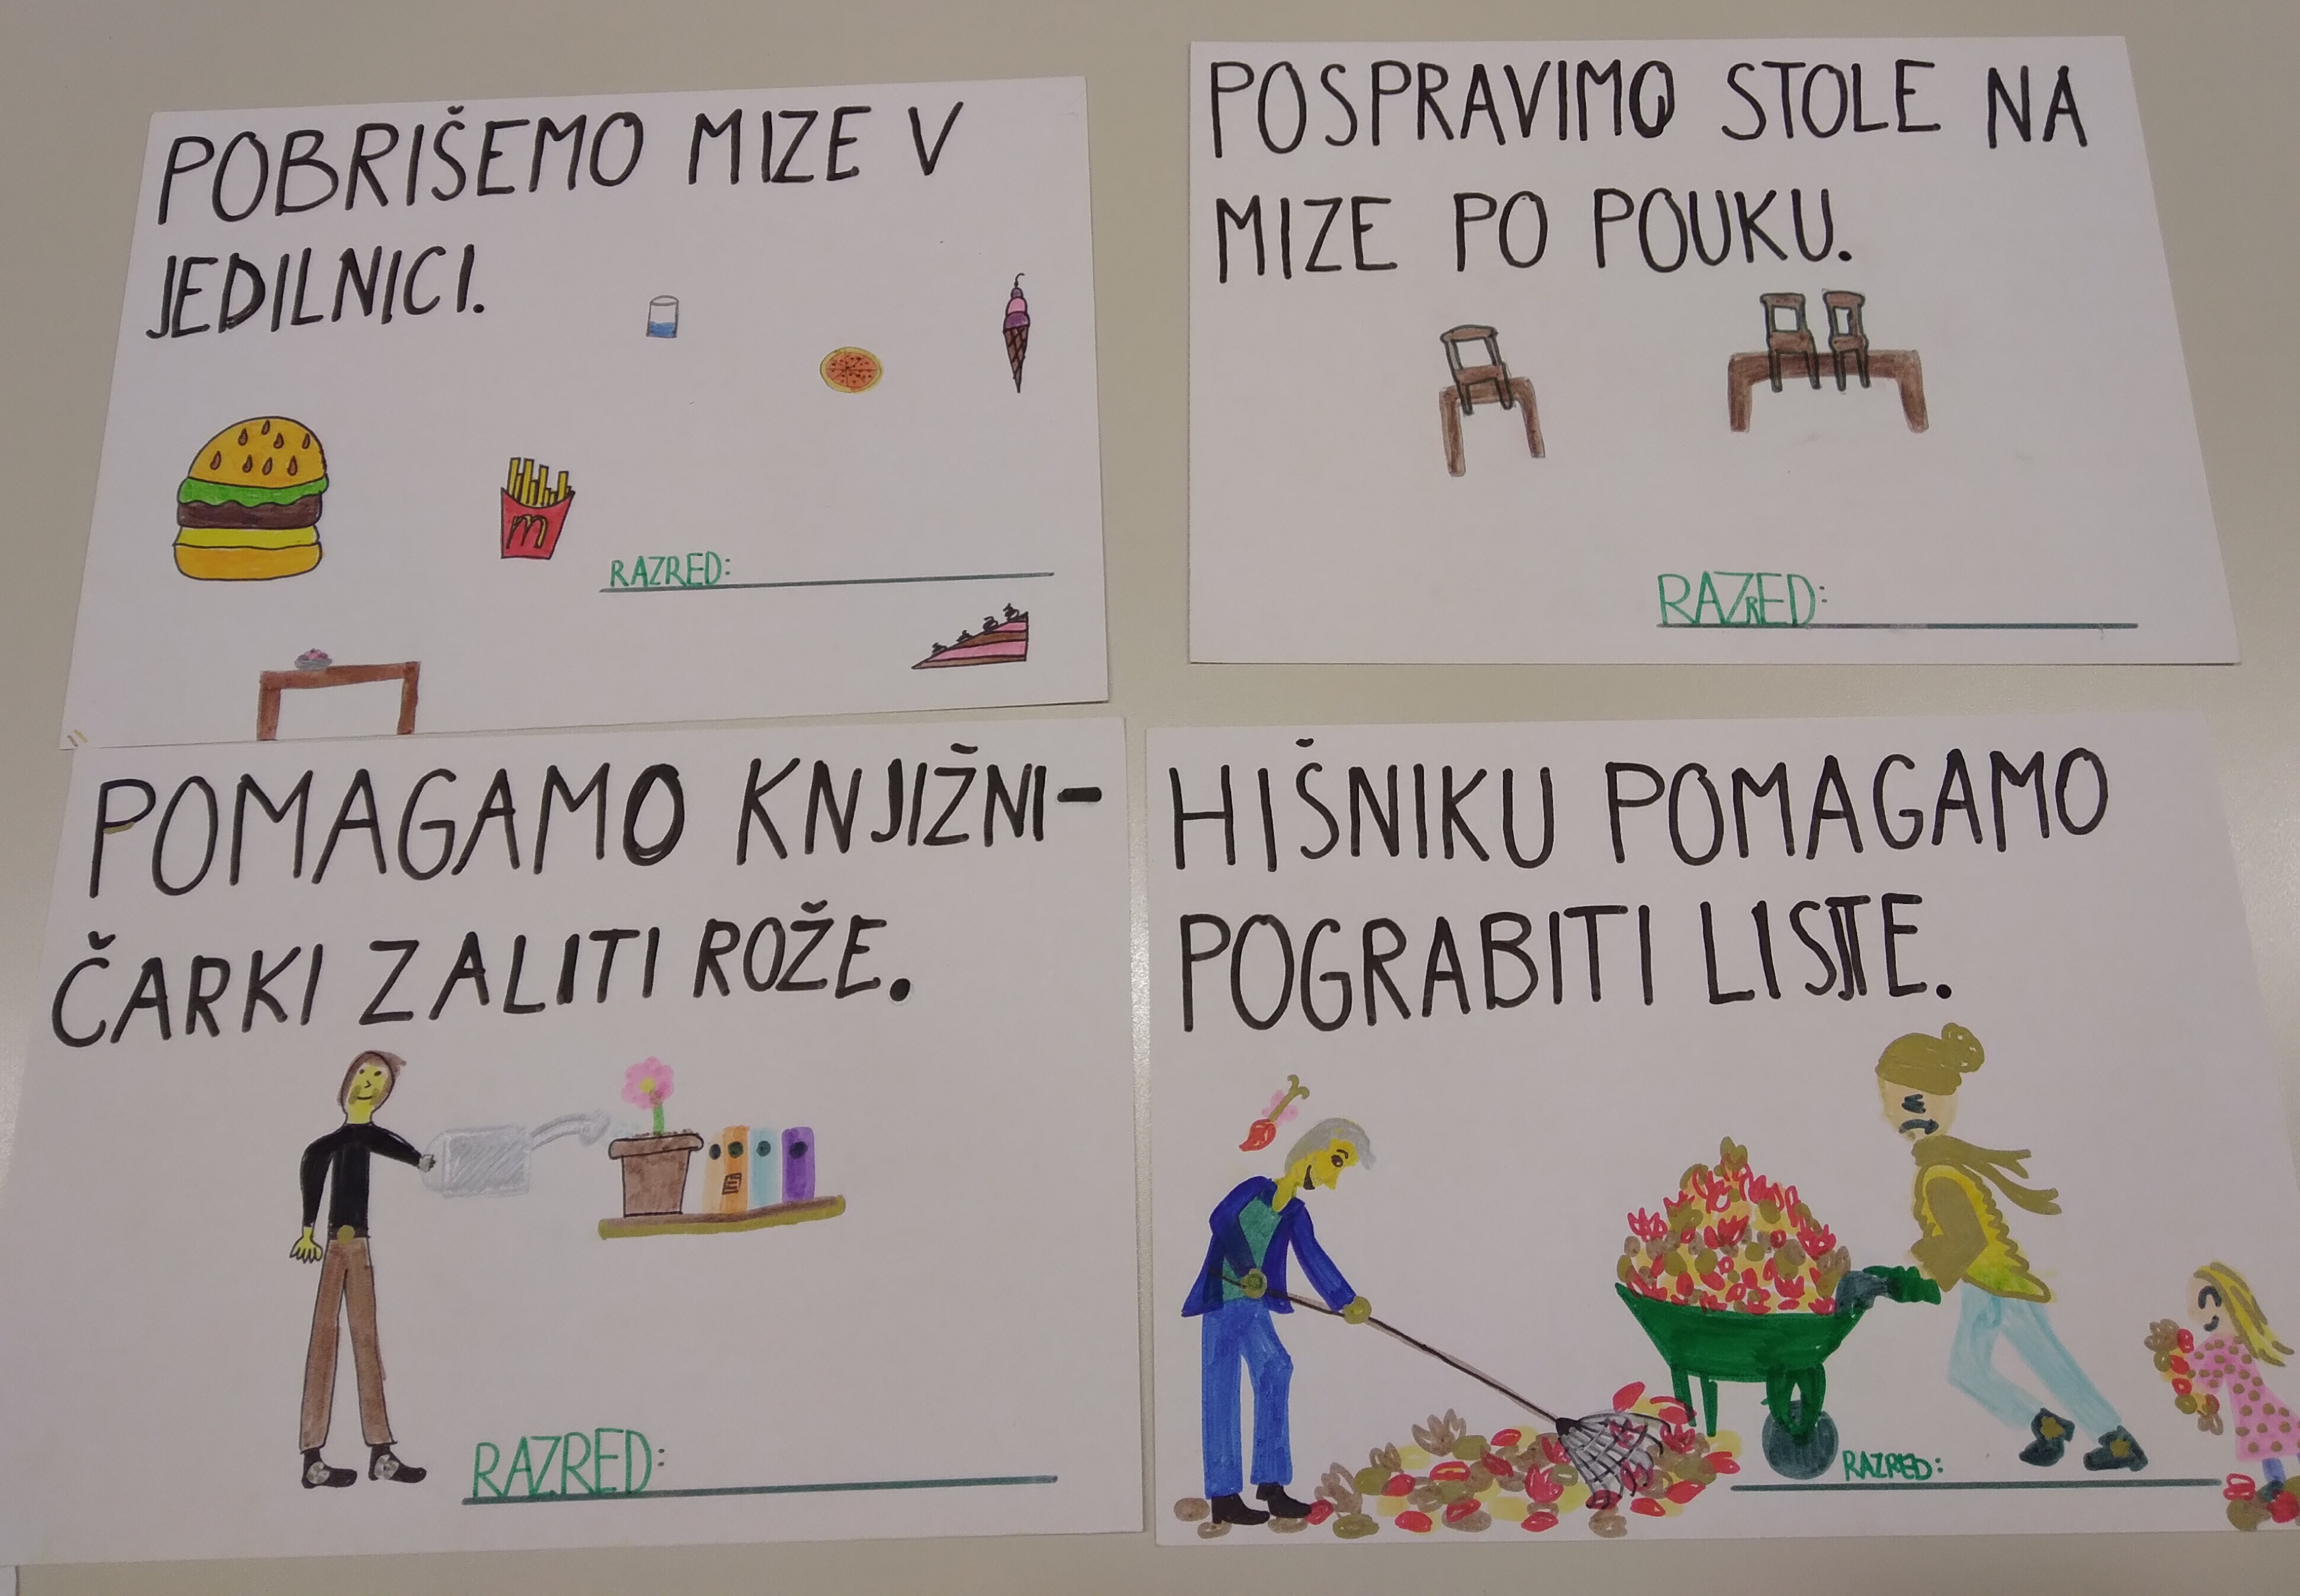 POBRIŠEMO MIZE V
JEDILNICI.
m
RAZRED:
POSPRAVIMO STOLE NA
MIZE PO POUKU.
RAZRED:
POMAGAMO KNJIŽNI-
ČARKI ZALITI ROŽE.
RAZRED:
HIŠNIKU POMAGAMO
POGRABITI LISTJE.
RAZRED: